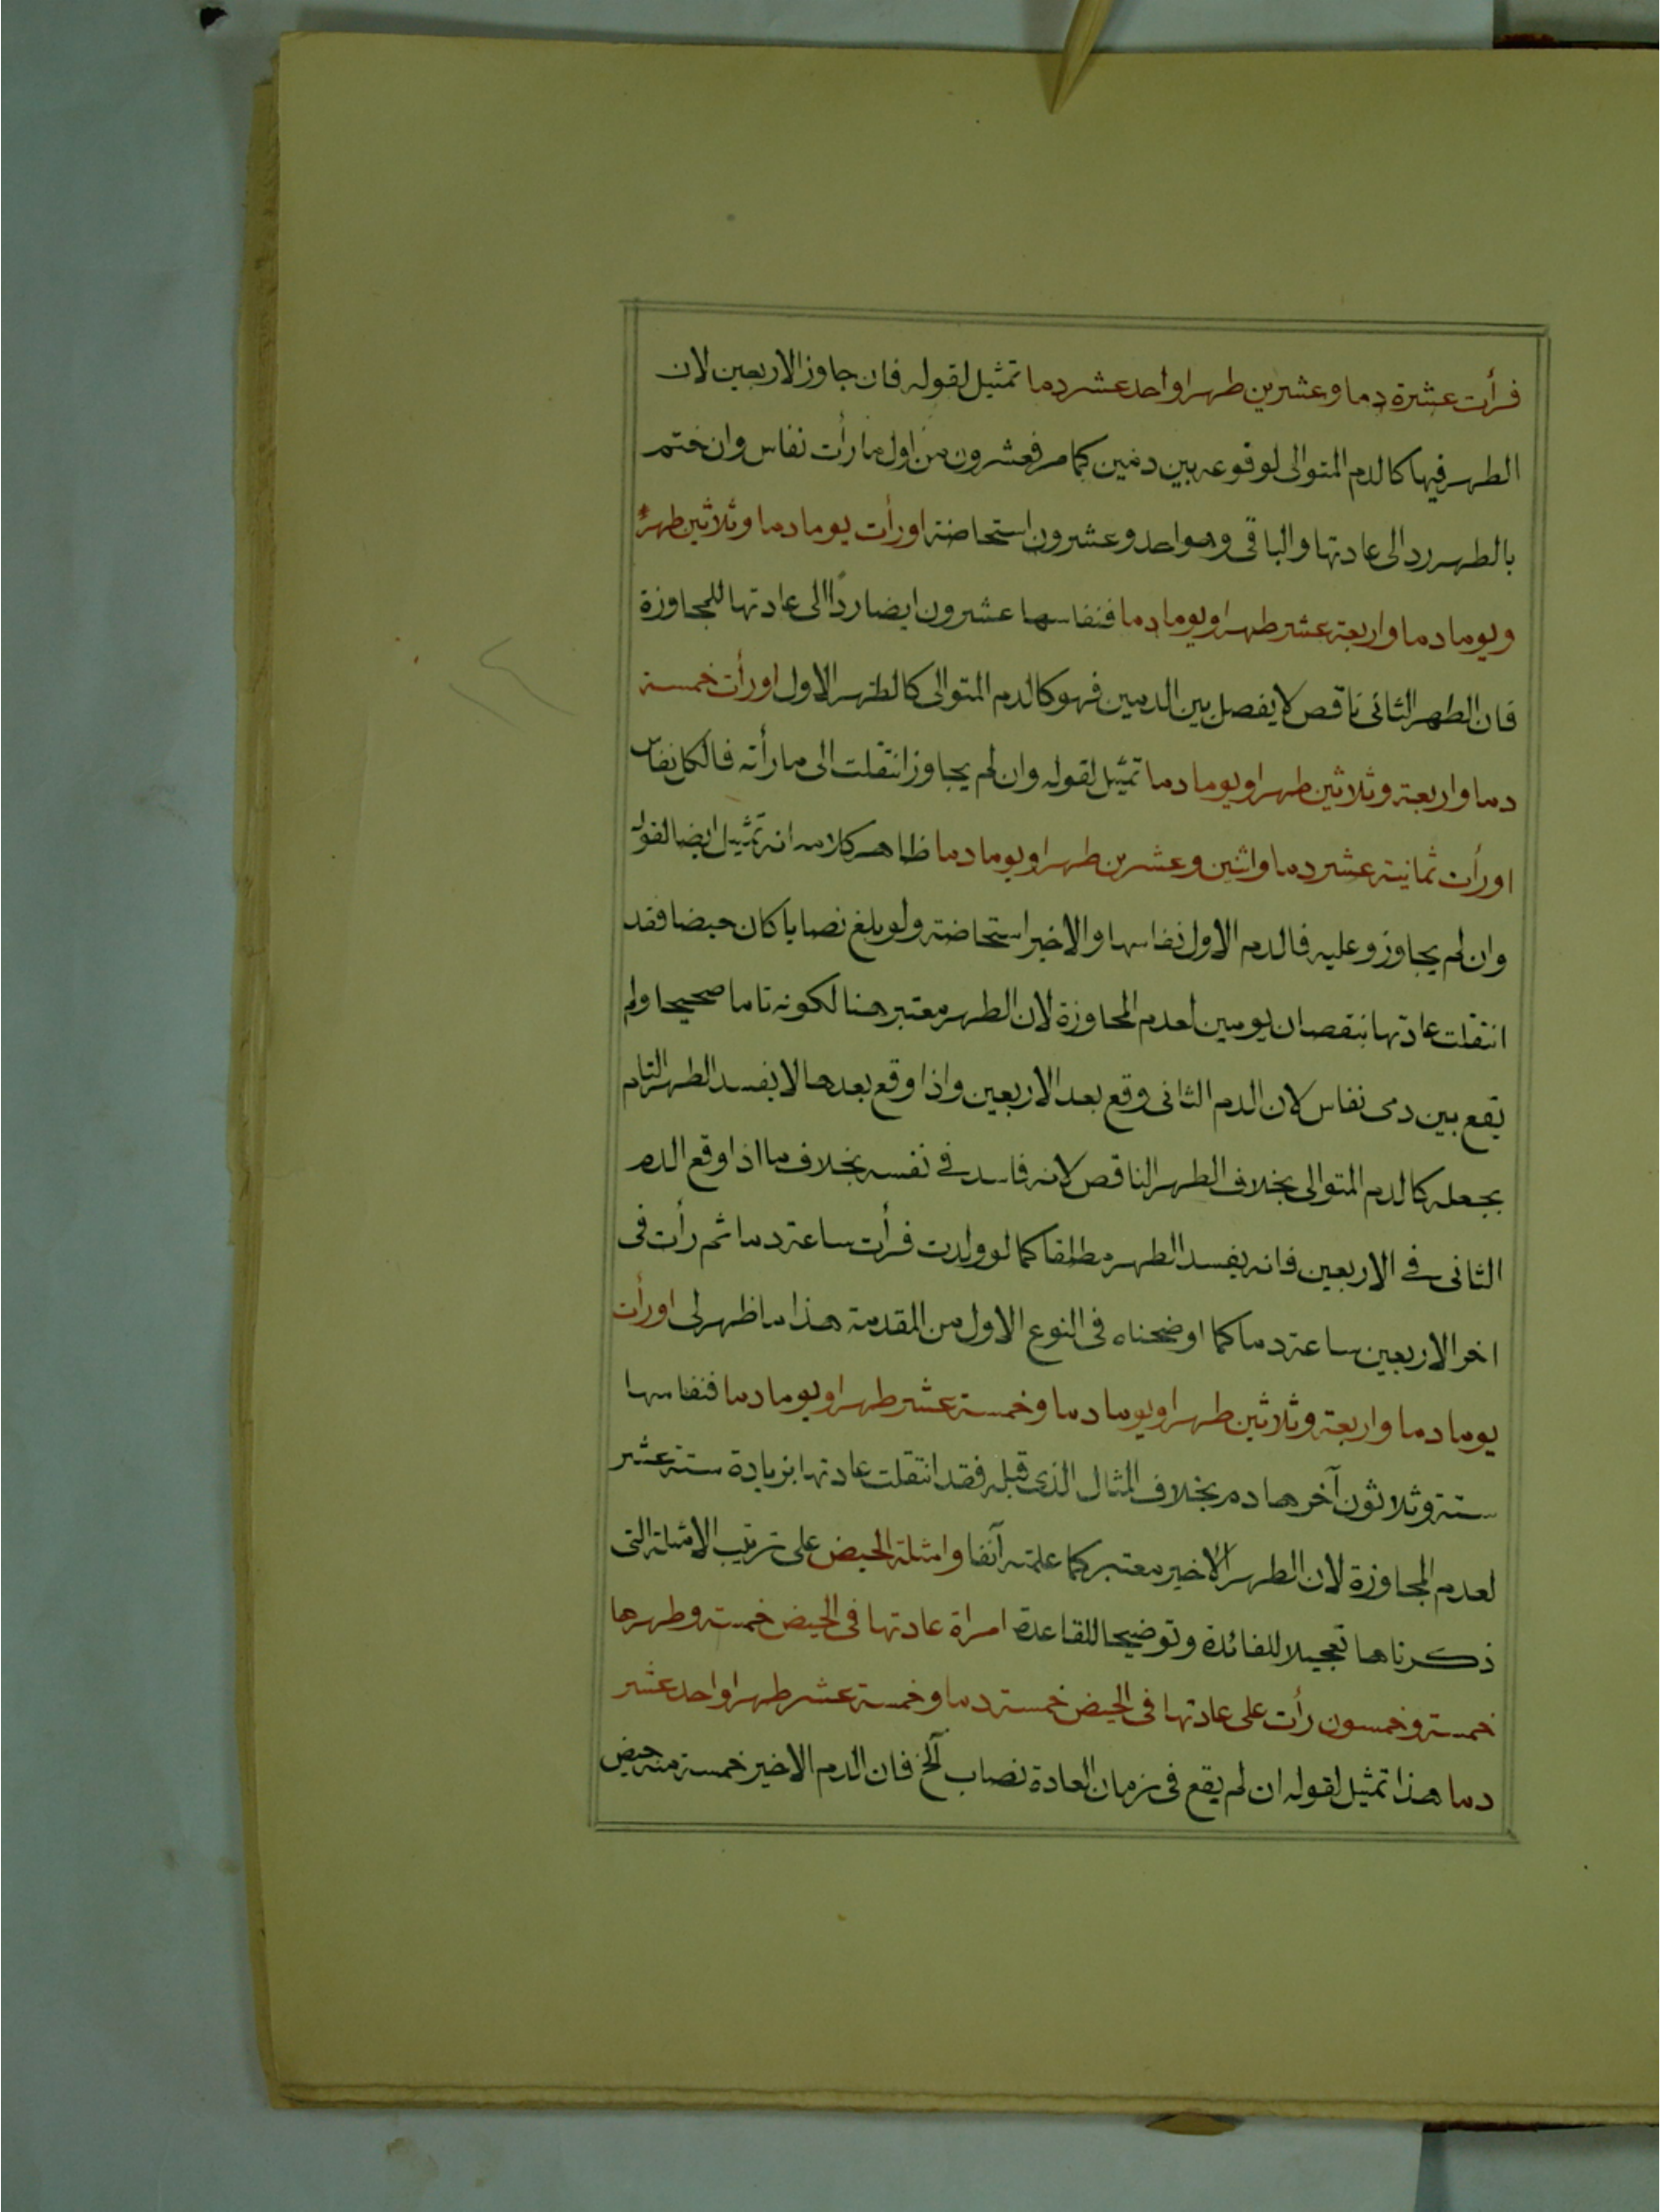 فرأت عشرة دما وعشرين طهرا واحد عشر دما تمثيل لقوله فان جاوز الاربعين لان
الطهر فيها كالدم المتوالى لوقوعه بين دمين كما مر فعشرون من اول ما رأت نفاس وان ختم
بالطهر رد الى عادتها والباقى وهو احد وعشرون استحاضة او رأت يوما دما وثلاثين طهرا
ويوما دما واربعة عشر طهرا ويوما دما فنفاسها عشرون ايضا ردّا الى عادتها للمجاوزة
فان الطهر الثانى ناقص لا يفصل بين الدمين فهو كالدم المتوالى كالطهر الاول او رأت خمسة
دما واربعة وثلاثين طهرا ويوما دما تمثيل لقوله وان لم يجاوز انتقلت الى ما رأته فالكل نفاس
او رأت ثمانية عشر دما واثنين وعشرين طهرا ويوما دما ظاهر كلامه انه تمثيل ايضا لقوله
وان لم يجاوز وعليه فالدم الاول نفاسها والاخير استحاضة ولو بلغ نصابا كان حيضا فقد
انتقلت عادتها بنقصان يومين لعدم المجاوزة لان الطهر معتبر هنا لكونه تاما صحيحا ولم
يقع بين دمى نفاس لان الدم الثانى وقع بعد الاربعين واذا وقع بعدها لا يفسد الطهر التام
بجعله كالدم المتوالى بخلاف الطهر الناقص لانه فاسد فى نفسه بخلاف ما اذا وقع الدم
الثانى فى الاربعين فانه يفسد الطهر مطلقا كما لو ولدت فرأت ساعة دما ثم رأت فى
اخر الاربعين ساعة دما كما اوضحناه فى النوع الاول من المقدمة هذا ما ظهر لى او رأت
يوما دما واربعة وثلاثين طهرا ويوما دما وخمسة عشر طهرا ويوما دما فنفاسها
ستة وثلاثون آخرها دم بخلاف المثال الذى قبله فقد انتقلت عادتها بزيادة ستة عشر
لعدم المجاوزة لان الطهر الاخير معتبر كما علمته آنفا وامثلة الحيض على ترتيب الامثلة التى
ذكرناها تعجيلا للفائدة وتوضيحا للقاعدة امراة عادتها فى الحيض خمسة وطهرها
خمسة وخمسون رأت على عادتها فى الحيض خمسة دما وخمسة عشر طهرا واحد عشر
دما هذا تمثيل لقوله ان لم يقع فى زمان العادة نصاب آلخ فان الدم الاخير خمسة منه حيض